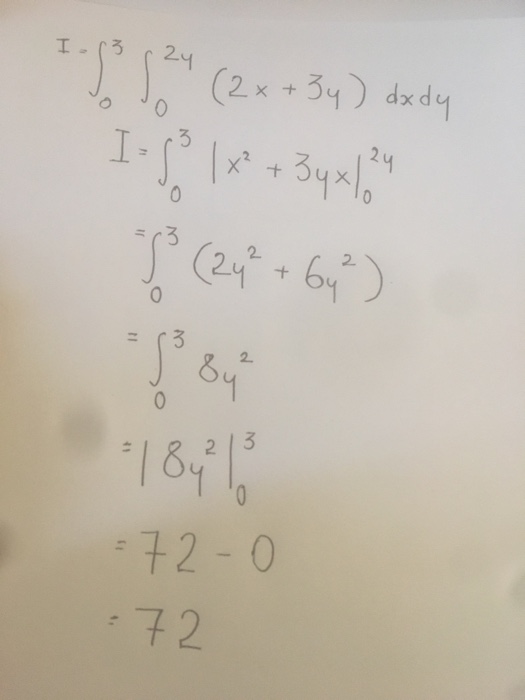 I = ∫₀³ ∫₀²ʸ (2x + 3y) dxdy
I = ∫₀³ |x² + 3yx|₀²ʸ
= ∫₀³ (2y² + 6y²)
= ∫₀³ 8y²
= |8y²|₀³
= 72 - 0
= 72